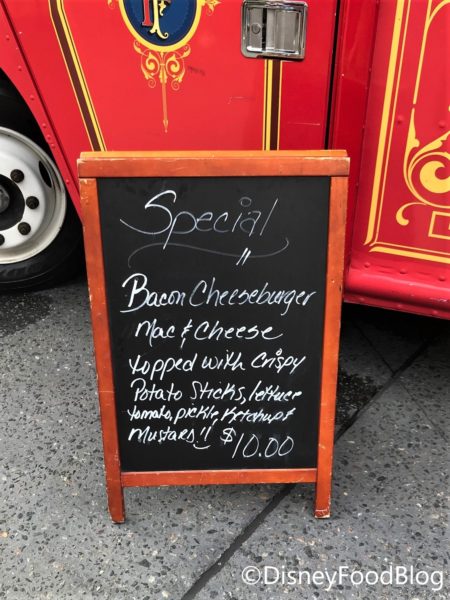 Special
Bacon Cheeseburger
Mac & Cheese
topped with Crispy
Potato Sticks, lettuce
tomato, pickle, Ketchup &
Mustard!! $10.00
©DisneyFoodBlog